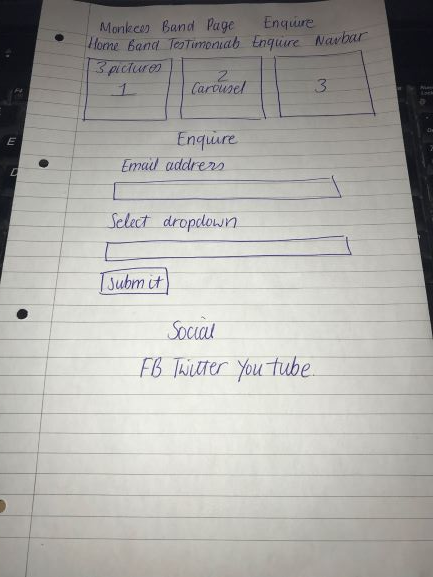 Monkees Band Page Enquire
Home Band Testimonials Enquire Navbar
3 pictures
1
2
Carousel
3
Enquire
Email address
Select dropdown
Submit
Social
FB Twitter You tube.